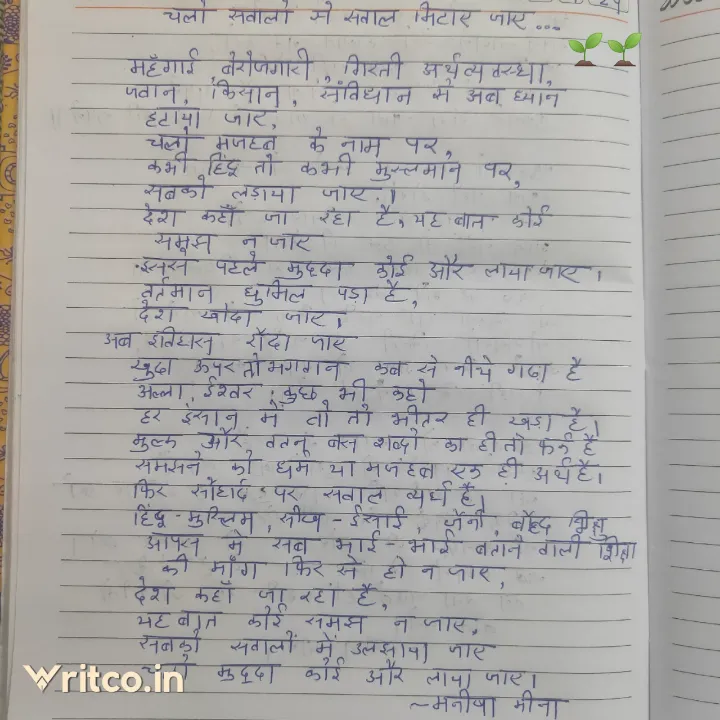 चलो सवालों से सवाल मिटाए जाए...
महँगाई, बेरोजगारी, गिरती अर्थव्यवस्था,
जवान, किसान, संविधान से अब ध्यान
हटाया जाए,
चलो मजहब के नाम पर,
कभी हिंदू तो कभी मुस्लमान पर,
सबको लड़ाया जाए।
देश कहाँ जा रहा है, यह बात कोई
समझ न जाए
इससे पहले मुद्दा कोई और लाया जाए।
वर्तमान धुमिल पड़ा है,
देश खोदा जाए।
अब इतिहास रौंदा जाए
खुदा ऊपर तो भगवान कब से नीचे गढा है
अल्ला, ईश्वर, कुछ भी कहो
हर इंसान में वो तो भीतर ही खड़ा है।
मुल्क और वतन बस शब्दों का ही तो फर्क है
समझने को धर्म या मजहब एक ही अर्थ है।
फिर सौहार्द पर सवाल व्यर्थ है।
हिंदू-मुस्लिम, सीख-ईसाई, जैनी, बौद्ध
आपस में सब भाई-भाई बताने वाली शिक्षा
की माँग फिर से हो न जाए,
देश कहाँ जा रहा है,
यह बात कोई समझ न जाए,
सबको सवालों में उलझाया जाए
चलो मुद्दा कोई और लाया जाए।
~मनीषा मीना
Writco.in